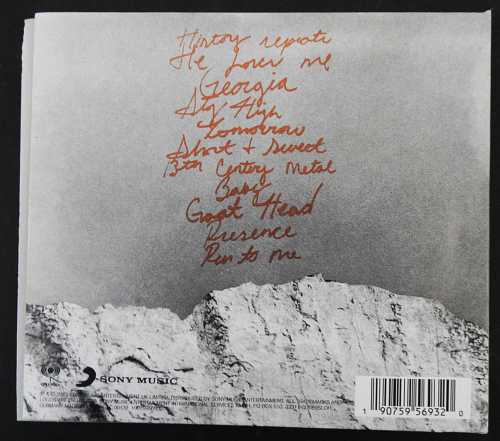 History repeats
He Loves me
Georgia
Stay High
Tomorrow
Short + Sweet
13th Century Metal
Baby
Goat Head
Presence
Run to me
SONY MUSIC
1 90759 56932 0